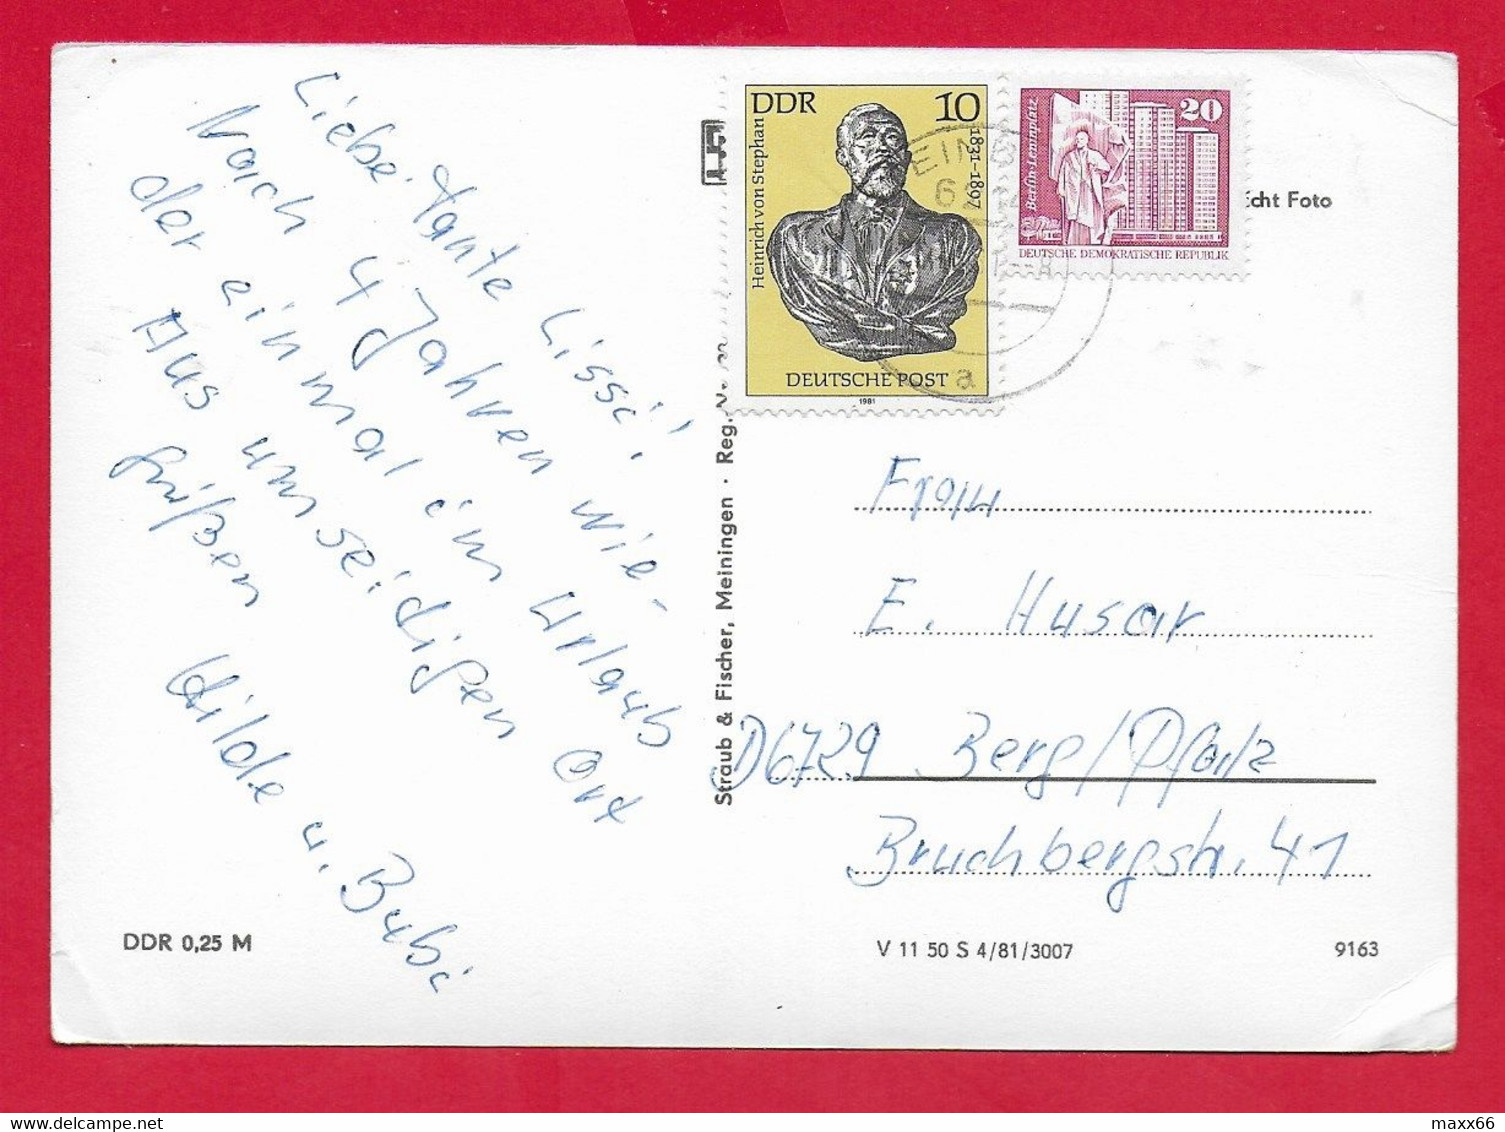 Liebe Tante Lissi!
Nach 4 Jahren wie-
der einmal im Urlaub
Aus umseidigen Ort
grüßen
Hilde u. Bubi
DDR 0,25 M
Straub & Fischer, Meiningen · Reg.
DDR 10
Heinrich von Stephan
1831-1897
DEUTSCHE POST
1981
20
Berlin-Leninplatz
DEUTSCHE DEMOKRATISCHE REPUBLIK
a
Echt Foto
Frau
E. Husar
D6729 Berg/Pfalz
Bruchbergstr. 41
V 11 50 S 4/81/3007
9163
maxx66